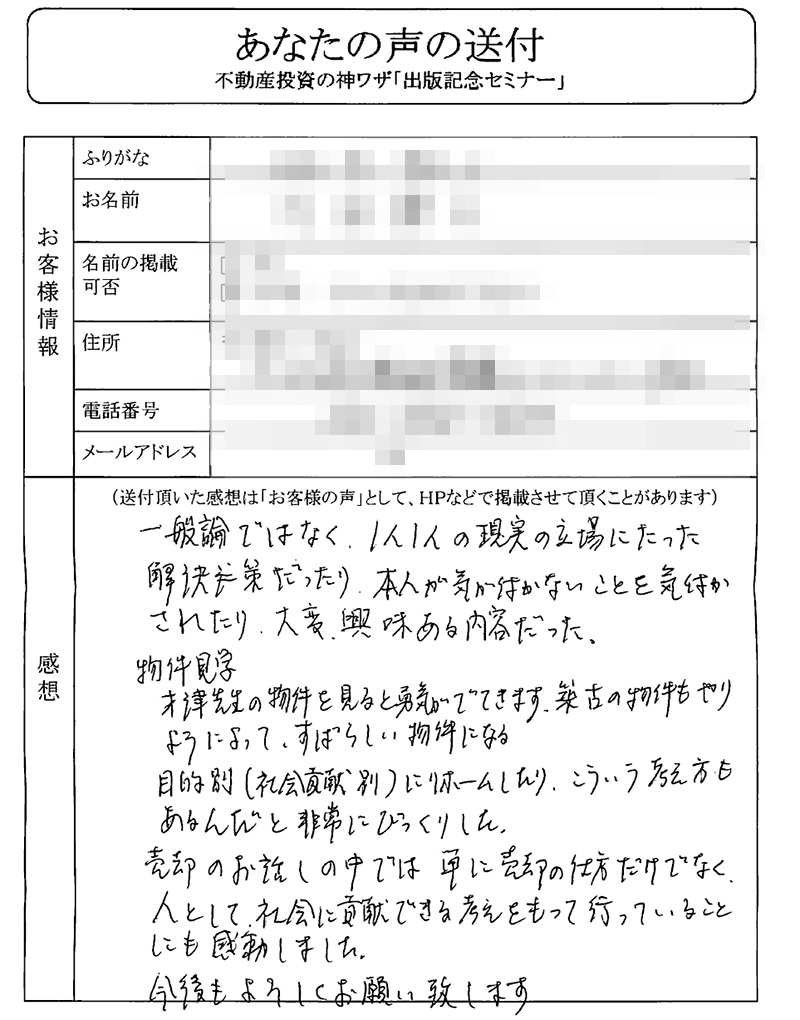 あなたの声の送付
不動産投資の神ワザ「出版記念セミナー」
お客様情報
ふりがな
お名前
名前の掲載
可否
住所
電話番号
メールアドレス
感想
(送付頂いた感想は「お客様の声」として、HPなどで掲載させて頂くことがあります)
一般論ではなく、1人1人の現実の立場にたった
解決策だったり、本人が気が付かないことを気付か
されたり、大変、興味ある内容だった。
物件見学
先生の物件を見ると勇気がでてきます、築古の物件もやり
ようによって、すばらしい物件になる
目的別(社会貢献別)にリホームしたり、こういう考え方も
あるんだと非常にびっくりした。
売却のお話しの中では単に売却の仕方だけでなく、
人として、社会に貢献できる考えをもって行っていること
にも感動しました。
今後もよろしくお願い致します